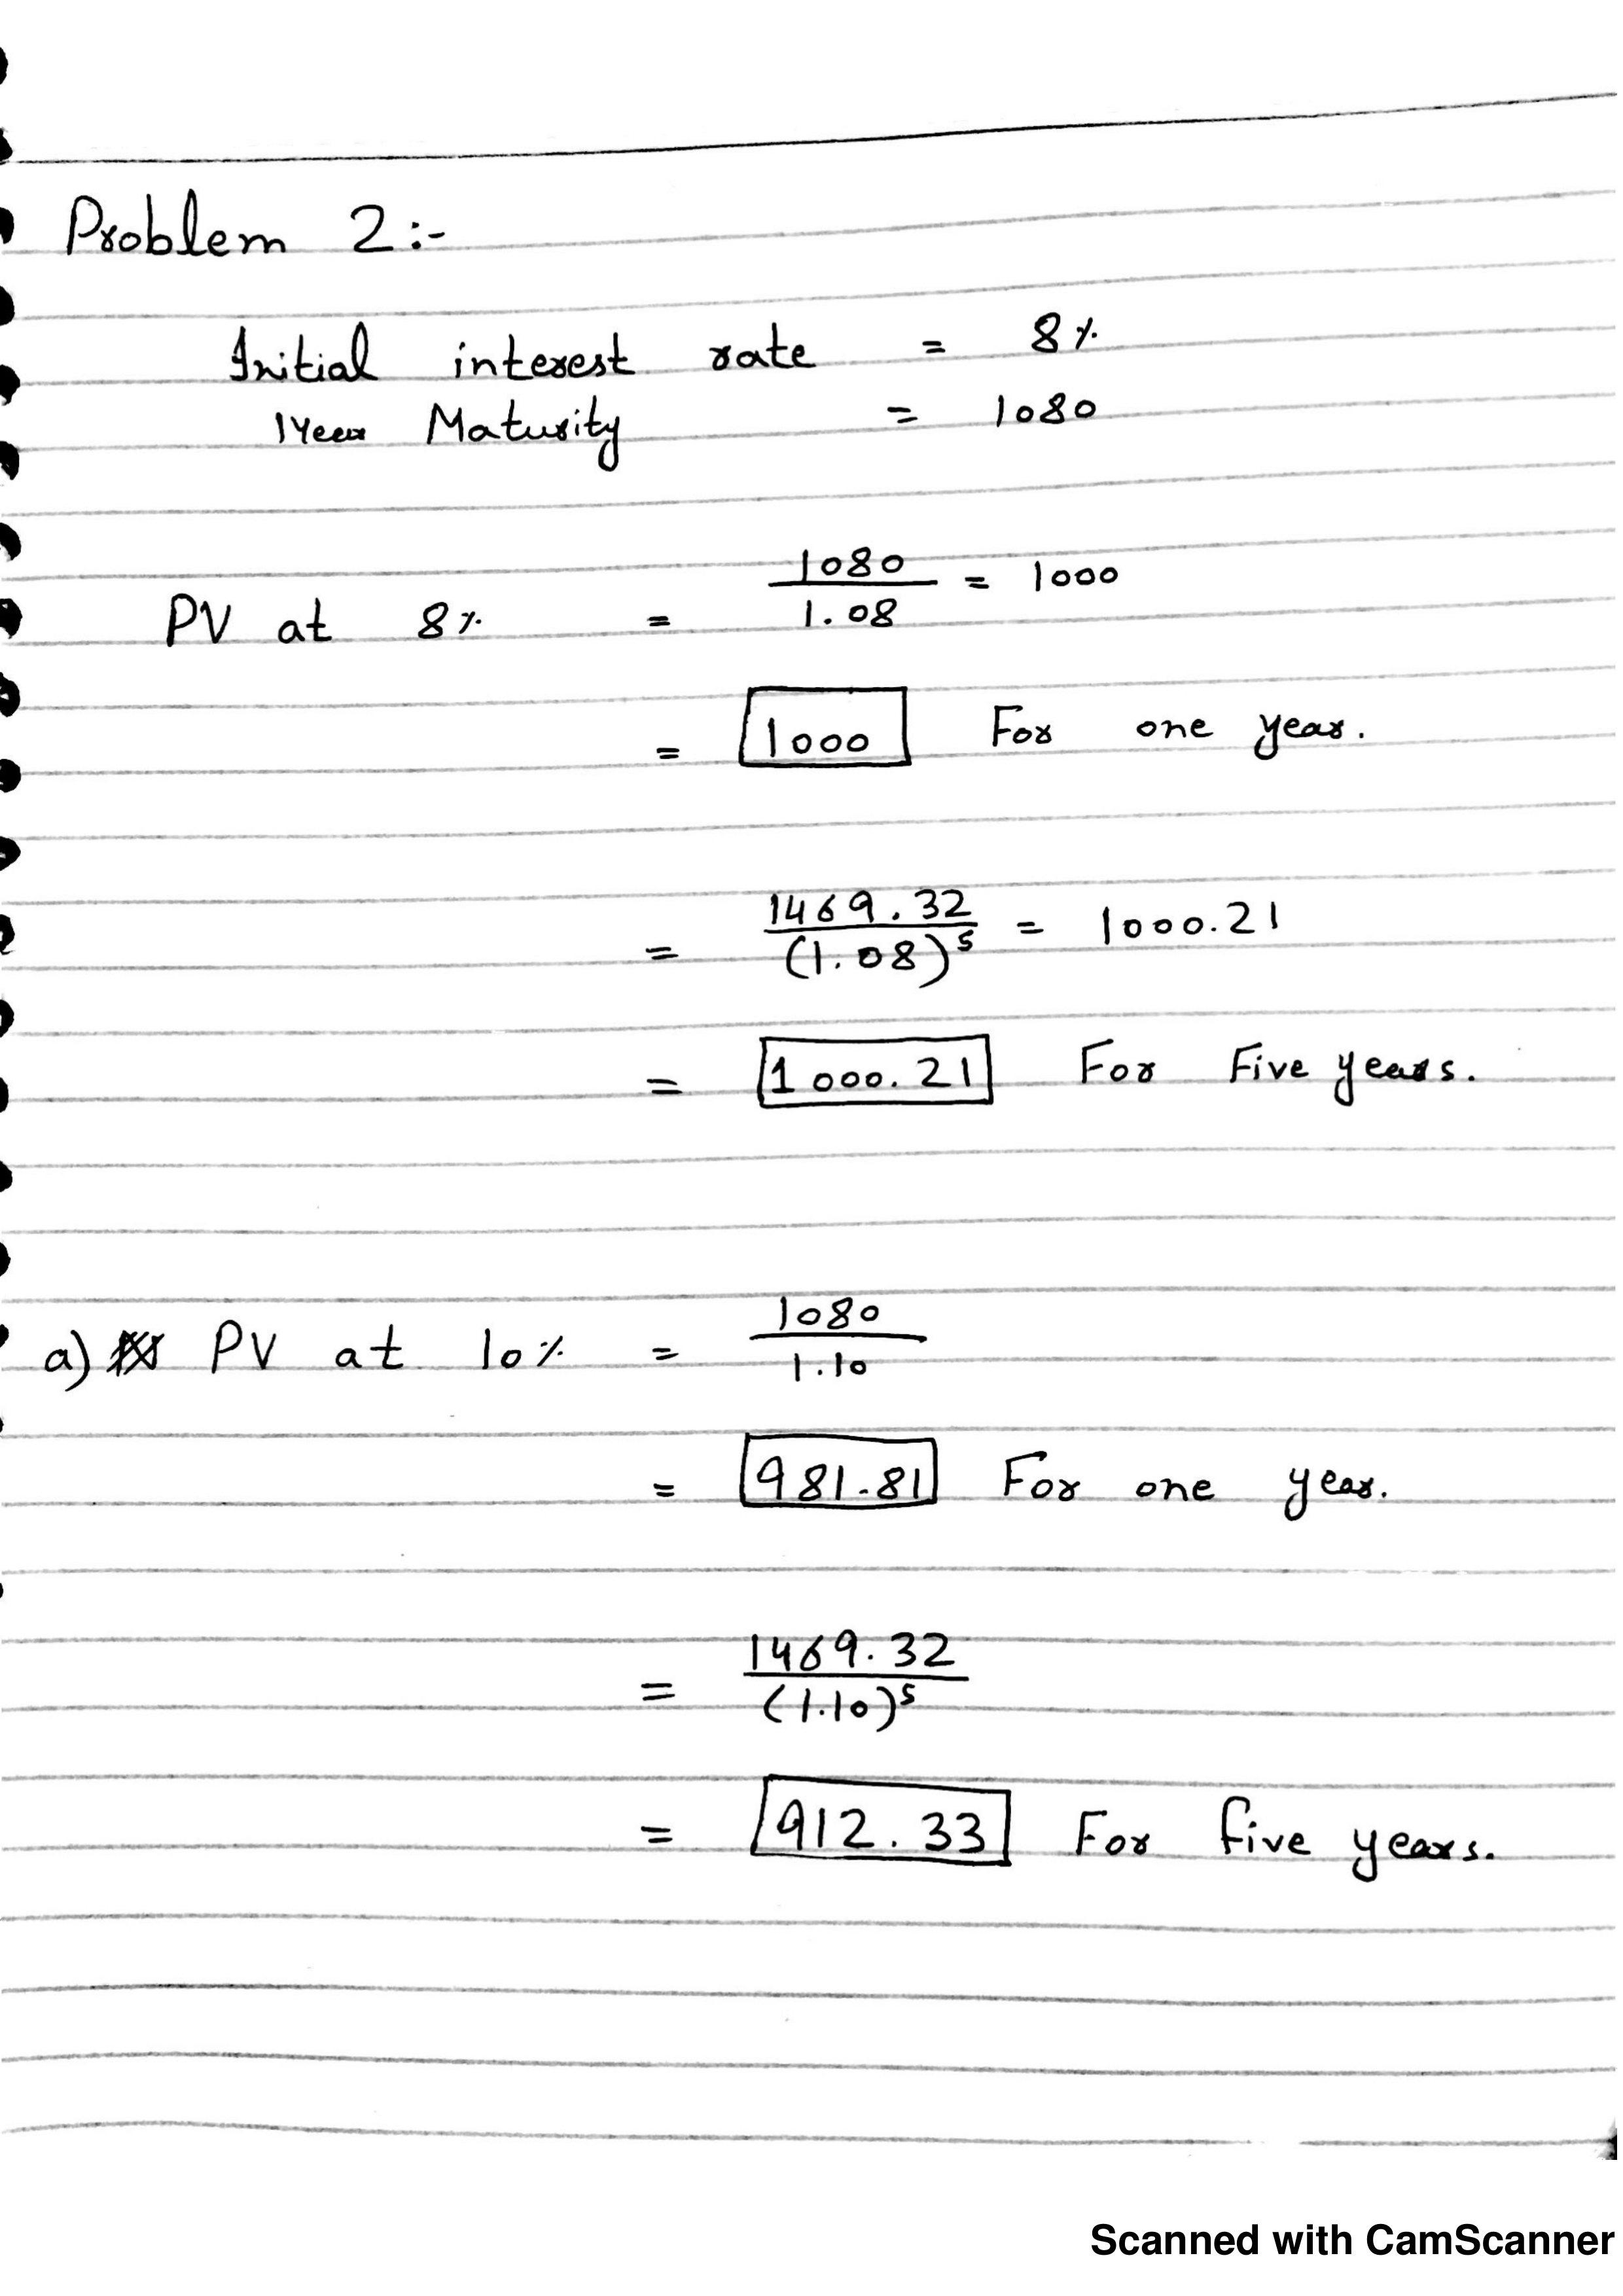 Problem 2:-
Initial interest rate = 8%
1Year Maturity = 1080
PV at 8% = 1080/1.08 = 1000
= 1000 For one year.
= 1469.32/(1.08)^5 = 1000.21
= 1000.21 For Five years.
a) PV at 10% = 1080/1.10
= 981.81 For one year.
= 1469.32/(1.10)^5
= 912.33 For five years.
Scanned with CamScanner